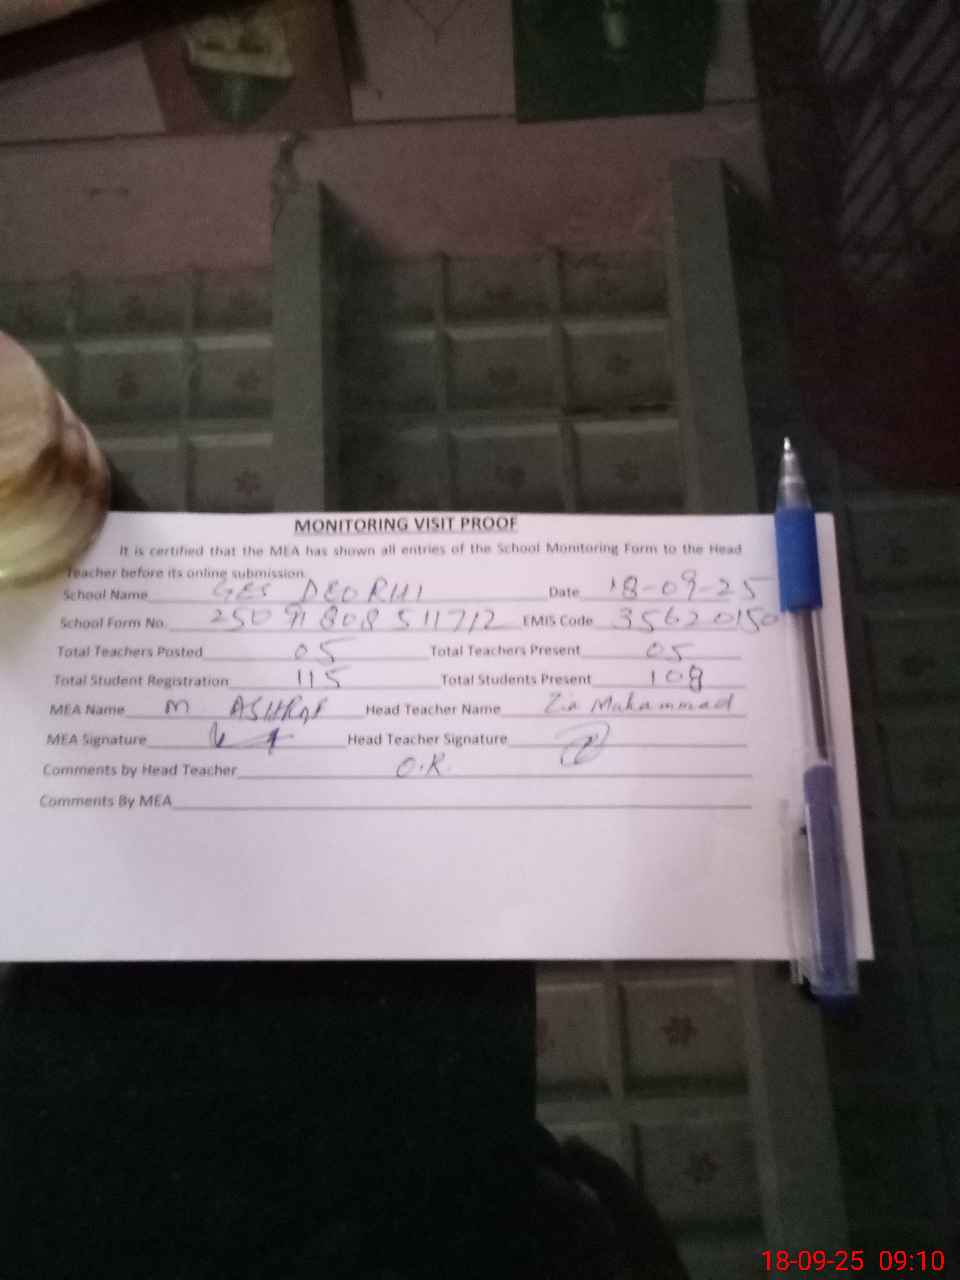 MONITORING VISIT PROOF
It is certified that the MEA has shown all entries of the School Monitoring Form to the Head
Teacher before its online submission.
School Name GES DEORHI Date 18-09-25
School Form No. 250918085 11712 EMIS Code 35620150
Total Teachers Posted 05 Total Teachers Present 05
Total Student Registration 115 Total Students Present 108
MEA Name M ASHRAF Head Teacher Name Zia Muhammad
MEA Signature Head Teacher Signature
Comments by Head Teacher O.K.
Comments By MEA
18-09-25 09:10